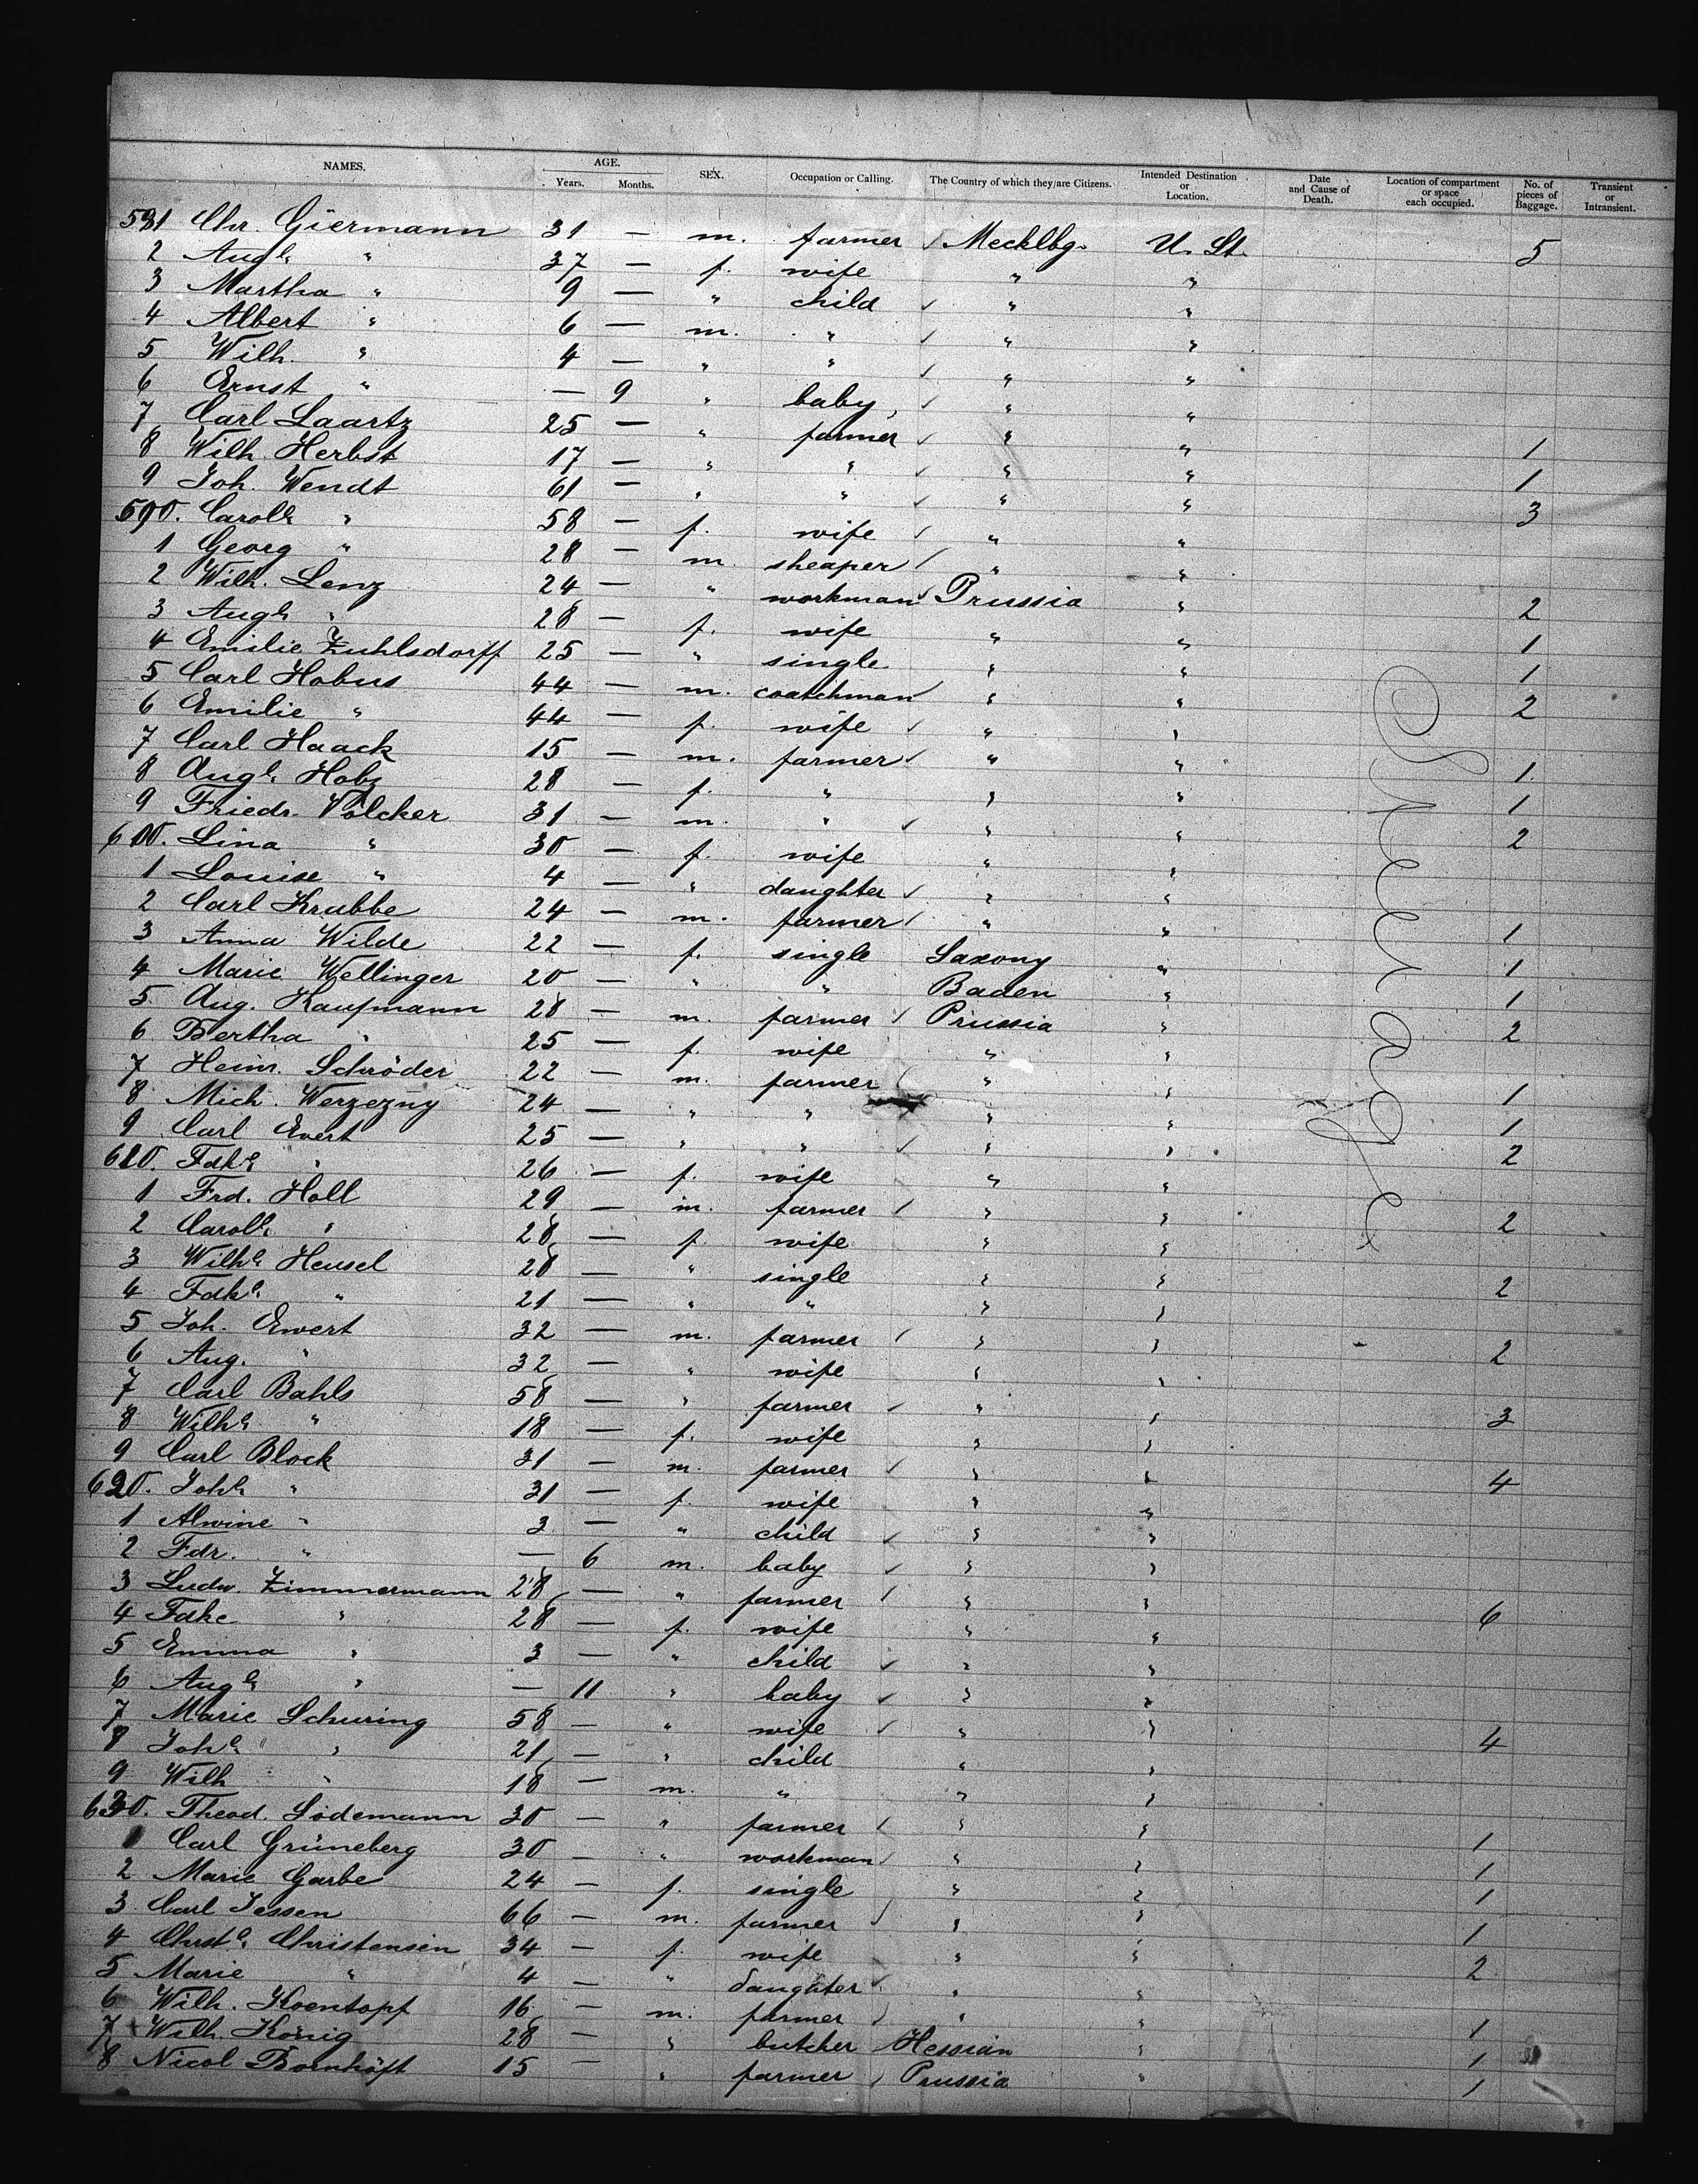 NAMES. AGE. Years. Months. SEX. Occupation or Calling. The Country of which they are Citizens. Intended Destination or Location. Date and Cause of Death. Location of compartment or space each occupied. No. of pieces of Baggage. Transient or Intransient.
581 Chr. Giermann 31 — m. farmer ✓ Mecklbg. U. St. 5
2 Augᵉ " 37 — f. wife " "
3 Martha " 9 — " child ✓ " "
4 Albert " 6 — m. " ✓ " "
5 Wilh. " 4 — " " ✓ " "
6 Ernst " — 9 " baby ✓ " "
7 Carl Laartz 25 — " farmer ✓ " " 1
8 Wilh. Herbst 17 — " " ✓ " " 1
9 Joh. Wendt 61 — " " ✓ " " 3
590. Carolᵉ " 58 — f. wife ✓ " "
1 Georg " 28 — m. sheaper ✓ " "
2 Wilh. Lenz 24 — " workman ✓ Prussia " 2
3 Augᵉ " 28 — f. wife " " 1
4 Emilie Zuhlsdorff 25 — " single " " 1
5 Carl Hobus 44 — m. coatchman ✓ " " 2
6 Emilie " 44 — f. wife ✓ " "
7 Carl Haack 15 — m. farmer ✓ " " 1
8 Augᵉ 28 — f. " " " 1
9 Friedr. Völcker 31 — m. " ✓ " " 2
600. Lina " 30 — f. wife " "
1 Louise " 4 — " daughter ✓ " "
2 Carl Krubbe 24 — m. farmer ✓ " " 1
3 Anna Wilde 22 — f. single Saxony " 1
4 Marie Wellinger 20 — " " Baden " 1
5 Aug. Kaufmann 28 — m. farmer ✓ Prussia " 2
6 Bertha " 25 — f. wife " "
7 Heinr. Schröder 22 — m. farmer ✓ " " 1
8 Mich. Werzezny 24 — " " " " 1
9 Carl Evert 25 — " " ✓ " " 2
610. Fdkᵉ " 26 — f. wife " "
1 Frd. Holl 29 — m. farmer ✓ " " 2
2 Carolᵉ " 28 — f. wife " "
3 Wilhᵉ Hensel 28 — " single " " 2
4 Fdkᵉ " 21 — " " " "
5 Joh. Ewert 32 — m. farmer ✓ " " 2
6 Aug. " 32 — " wife " "
7 Carl Bahls 58 — " farmer ✓ " " 3
8 Wilhᵉ " 18 — f. wife " "
9 Carl Block 31 — m. farmer ✓ " " 4
620. Johᵉ " 31 — f. wife " "
1 Alwine " 3 — " child ✓ " "
2 Fdr. " — 6 m. baby ✓ " "
3 Ludw. Zimmermann 28 — " farmer ✓ " " 6
4 Fdke " 28 — f. wife " "
5 Emma " 3 — " child ✓ " "
6 Augᵉ " — 11 " baby ✓ " "
7 Marie Schuring 58 — " wife ✓ " " 4
8 Johᵉ " 21 — " child " "
9 Wilh " 18 — m. " " "
630. Theod. Lödemann 30 — " farmer ✓ " " 1
1 Carl Grüneberg 30 — " workman ✓ " " 1
2 Marie Garbe 24 — f. single " " 1
3 Carl Jessen 66 — m. farmer ✓ " " 1
4 Chrstᵉ Christensen 34 — f. wife " " 2
5 Marie " 4 — " daughter ✓ " "
6 Wilh. Koentopf 16 — m. farmer ✓ " " 1
7 Wilh. König 28 — " butcher Hessian " 1
8 Nicol Bornhöft 15 — " farmer ✓ Prussia " 1
Steerage